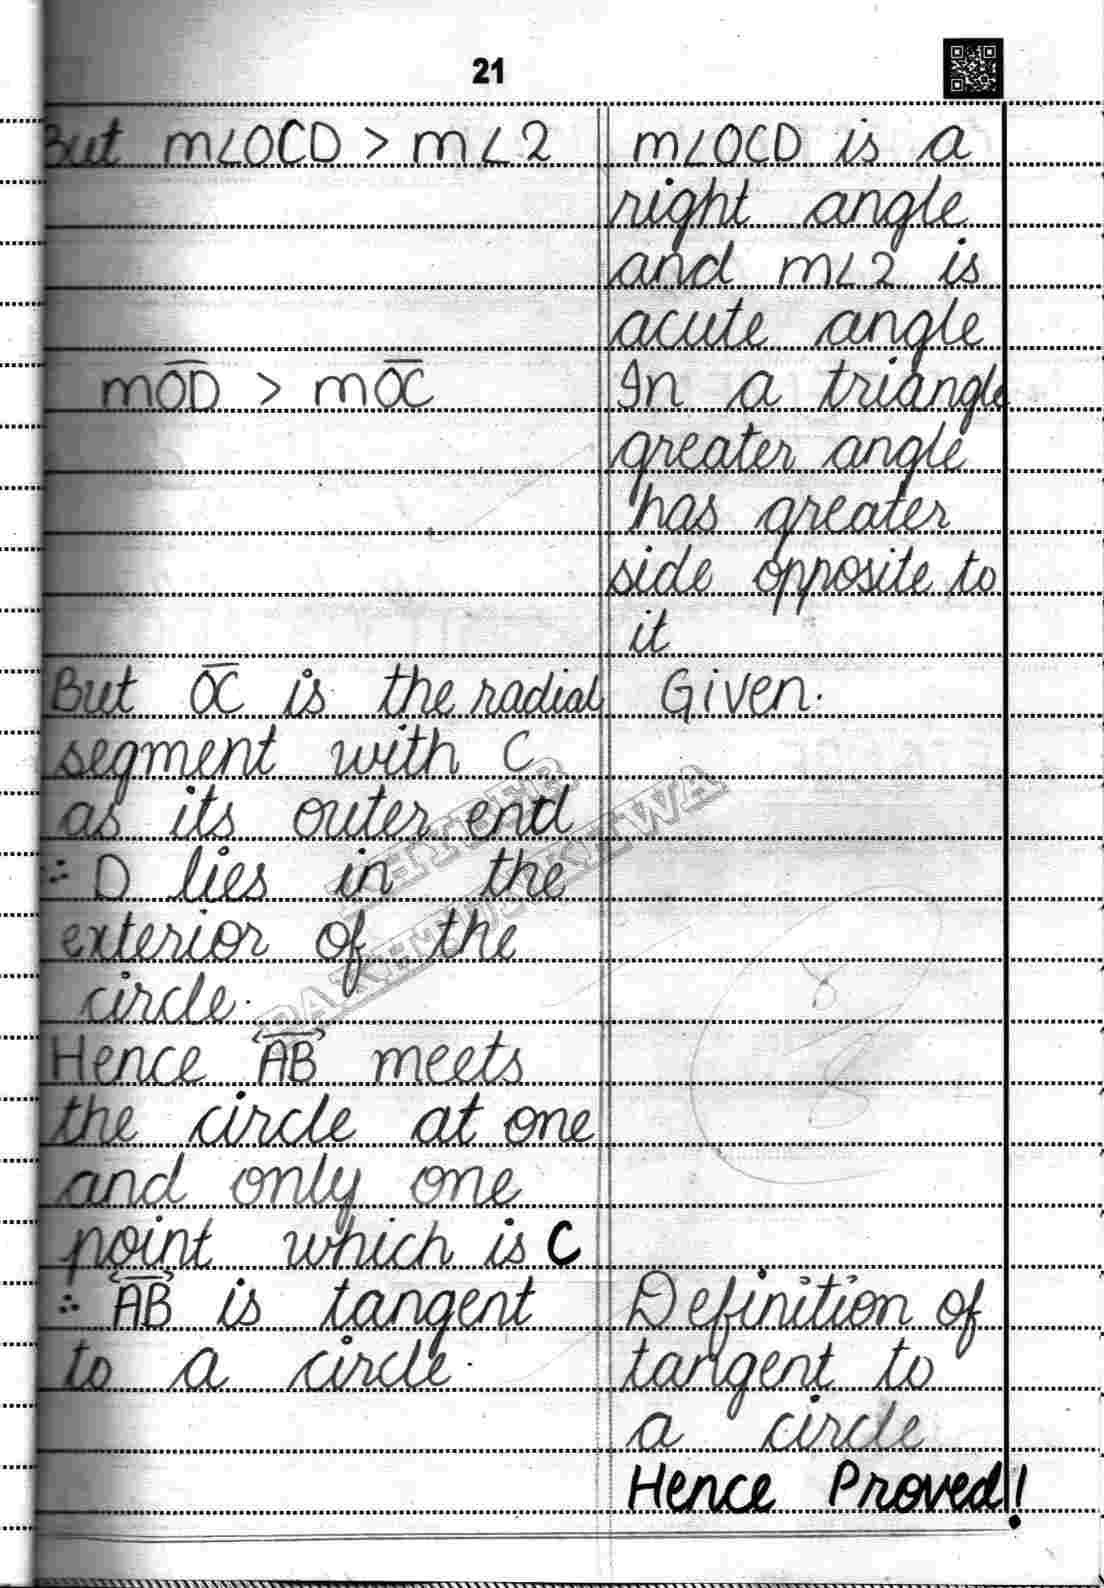 21
But m∠OCD > m∠2
m∠OCD is a
right angle
and m∠2 is
acute angle
mO̅D̅ > mO̅C̅
In a triangle
greater angle
has greater
side opposite to
it
But O̅C̅ is the radial
segment with C
as its outer end
Given.
∴ D lies in the
exterior of the
circle.
Hence A͍B⃡ meets
the circle at one
and only one
point which is C
∴ AB⃡ is tangent
to a circle.
Definition of
tangent to
a circle
Hence Proved!
8
8